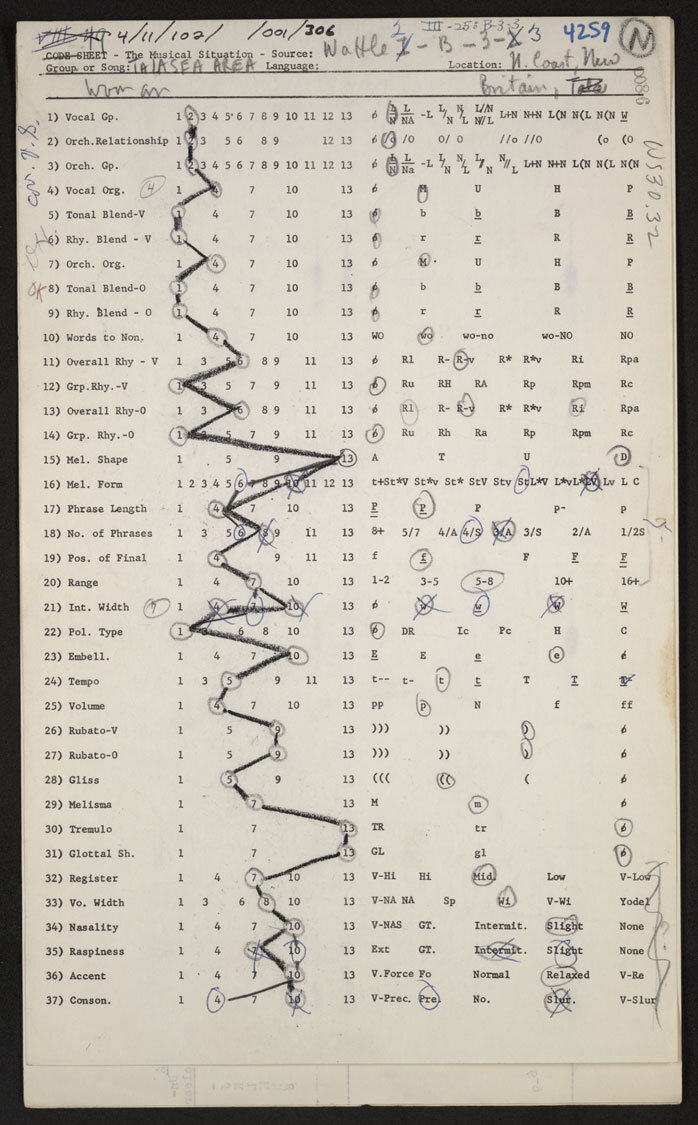 4/11/102/ /001/306 III-258 B-3-3
CODE SHEET - The Musical Situation - Source: Wattle - B - 3 - 3 4259 N
Group or Song: TALASEA AREA Language: Location: N. Coast, New
Woman Britain,
0086
W530.32
1) Vocal Gp. 1 2 3 4 5·6 7 8 9 10 11 12 13 ø L/N L/NA -L L/N N/L L//N N//L L+N N+N L(N N(L N(N W
2) Orch.Relationship 1 2 3 5 6 8 9 12 13 ø /0 /O O/ O //o //O (o (O
3) Orch. Gp. 1 2 3 4 5 6 7 8 9 10 11 12 13 ø L/N L/Na -L L/N N/L L//N N//L L+N N+N L(N N(L N(N
4) Vocal Org. 4 1 4 7 10 13 ø M U H P
5) Tonal Blend-V 1 4 7 10 13 ø b b B B
6) Rhy. Blend - V 1 4 7 10 13 ø r r R R
7) Orch. Org. 1 4 7 10 13 ø M U H P
OK 8) Tonal Blend-O 1 4 7 10 13 ø b b B B
9) Rhy. Blend - O 1 4 7 10 13 ø r r R R
10) Words to Non. 1 4 7 10 13 WO wo wo-no wo-NO NO
11) Overall Rhy - V 1 3 5 6 8 9 11 13 ø R1 R- R-v R* R*v Ri Rpa
12) Grp.Rhy.-V 1 3 5 7 9 11 13 ø Ru RH RA Rp Rpm Rc
13) Overall Rhy-O 1 3 5 6 8 9 11 13 ø R1 R- R-v R* R*v Ri Rpa
14) Grp. Rhy.-O 1 3 5 7 9 11 13 ø Ru Rh Ra Rp Rpm Rc
15) Mel. Shape 1 5 9 13 A T U D
16) Mel. Form 1 2 3 4 5 6 7 8 9 10 11 12 13 t+St*V St*v St* StV Stv StL*V L*vL*LV Lv L C
17) Phrase Length 1 4 7 10 13 P P P p- p
18) No. of Phrases 1 3 5 6 8 9 11 13 8+ 5/7 4/A 4/S 3/A 3/S 2/A 1/2S
19) Pos. of Final 1 4 9 11 13 f f F F F
20) Range 1 4 7 10 13 1-2 3-5 5-8 10+ 16+
21) Int. Width 7 1 4 7 10 13 ø w w W W
22) Pol. Type 1 3 6 8 10 13 ø DR Ic Pc H C
23) Embell. 1 4 7 10 13 E E e e ø
24) Tempo 1 3 5 9 11 13 t-- t- t t T T T
25) Volume 1 4 7 10 13 PP p N f ff
26) Rubato-V 1 5 9 13 ))) )) ) ø
27) Rubato-O 1 5 9 13 ))) )) ) ø
28) Gliss 1 5 9 13 ((( (( ( ø
29) Melisma 1 7 13 M m ø
30) Tremulo 1 7 13 TR tr ø
31) Glottal Sh. 1 7 13 GL gl ø
32) Register 1 4 7 10 13 V-Hi Hi Mid. Low V-Low
33) Vo. Width 1 3 6 8 10 13 V-NA NA Sp Wi V-Wi Yodel
34) Nasality 1 4 7 10 13 V-NAS GT. Intermit. Slight None
35) Raspiness 1 4 7 10 13 Ext GT. Intermit. Slight None
36) Accent 1 4 7 10 13 V.Force Fo Normal Relaxed V-Re
37) Conson. 1 4 7 10 13 V-Prec. Pre. No. Slur. V-Slur